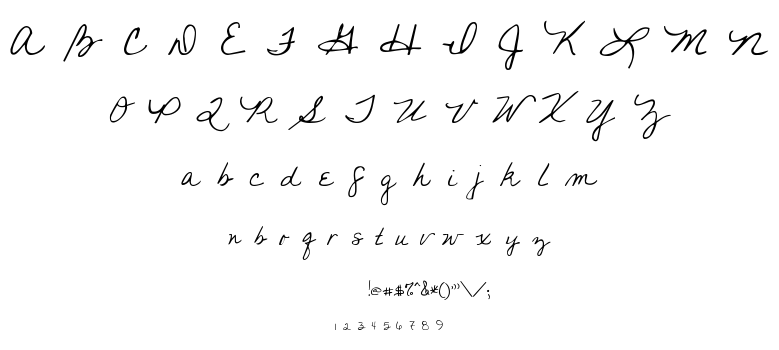 A B C D E F G H I J K L M N
O P Q R S T U V W X Y Z
a b c d e f g h i j k l m
n b o q r s t u v w x y z
!@#$%^&*()'"\/;
1 2 3 4 5 6 7 8 9